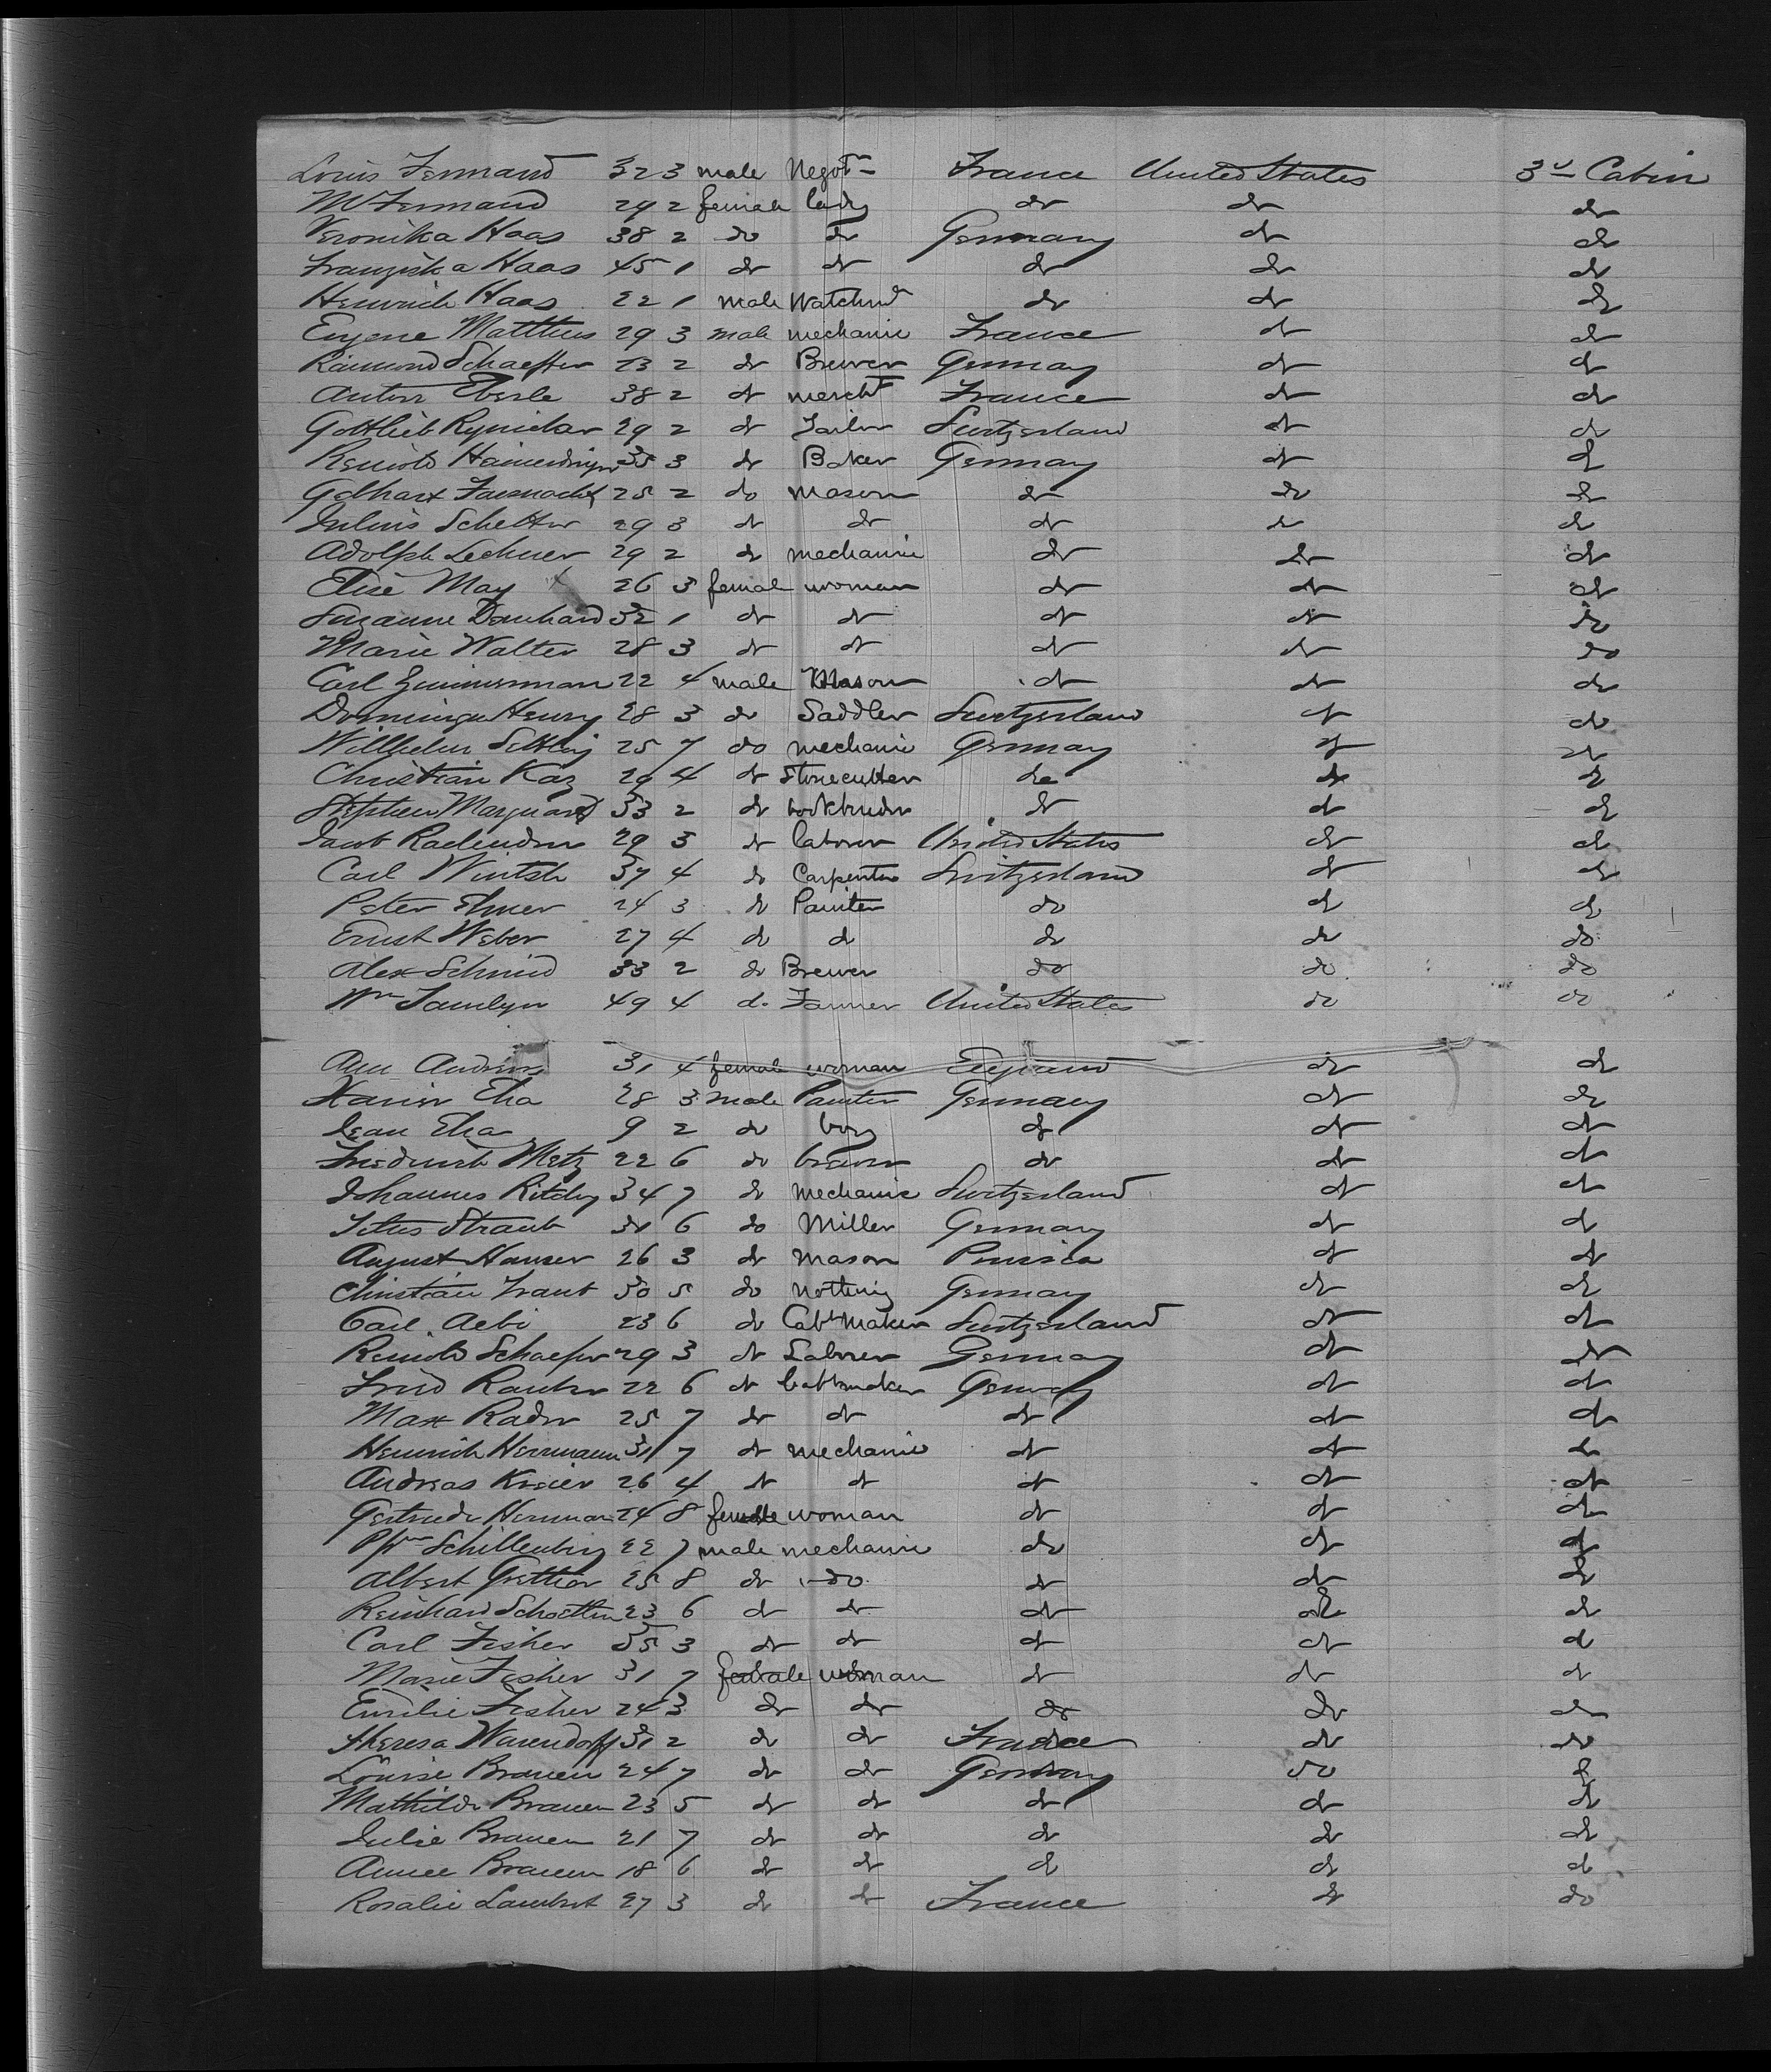 Louis Fermand 32 3 male Negot- France United States 3d Cabin
M Fermand 29 2 female lady do do do
Veronika Haas 38 2 do do Germany do do
Franziska Haas 45 1 do do do do do
Heinrich Haas 22 1 male do do do
Eugene Matthus 29 3 male mechanic France do do
Raimund Schaeffer 23 2 do Brewer Germany do do
Anton Eberle 38 2 do mercht France do do
Gottlieb 29 2 do Tailor Switzerland do do
Reinold 35 3 do Baker Germany do do
Gebhart 25 2 do mason do do do
Julius Schelter 29 3 do do do do do
Adolph Lechner 29 2 do mechanic do do do
Elise May 26 3 female woman do do do
Suzanne 32 1 do do do do do
Marie Walter 28 3 do do do do do
Carl Zimmerman 22 4 male Mason do do do
Henry 28 3 do Saddler Switzerland do do
Wilhelm 25 7 do mechanic Germany do do
Christian Kaz 29 4 do Stonecutter do do do
Stephen Marquard 33 2 do bookbinder do do do
Jacob 29 3 do laborer United States do do
Carl Wintsh 37 4 do Carpenter Switzerland do do
Peter Elmer 24 3 do Painter do do do
Ernst Weber 27 4 do do do do do
Alex Schmid 33 2 do Brewer do do do
Wm 49 4 do Farmer United States do do
Ann 31 4 female woman do do
Xavier Eha 28 3 male Painter Germany do do
Jean Eha 9 2 do boy do do do
Friedrich Metz 22 6 do brewer do do do
Johannes 34 7 do mechanic Switzerland do do
Titus Straub 31 6 do Miller Germany do do
August Hauser 26 3 do mason Prussia do do
Christian Traub 30 5 do nothing Germany do do
Carl Aebi 23 6 do Cabtmaker Switzerland do do
Reinold Schaefer 29 3 do Laborer Germany do do
Fried 22 6 do Cabtmaker Germany do do
Max Rader 25 7 do do do do do
Heinrich Herrmann 31 7 do mechanic do do do
Andreas 26 4 do do do do do
Gertrude Herrman 24 8 female woman do do do
22 7 male mechanic do do do
Albert 25 8 do do do do do
Reinhard 23 6 do do do do do
Carl Fisher 55 3 do do do do do
Marie Fisher 31 7 female woman do do do
Emilie Fisher 24 3 do do do do do
Theresa Warendorff 31 2 do do France do do
Louise Brauen 24 7 do do Germany do do
Mathilde Brauen 23 5 do do do do do
Julie Brauen 21 7 do do do do do
Annee Brauen 18 6 do do do do do
Rosalie Lambert 27 3 do do France do do